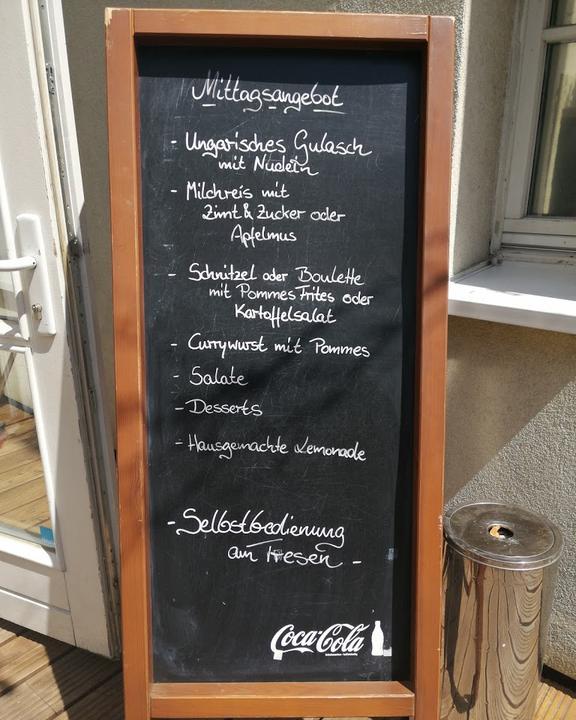 Mittagsangebot
- Ungarisches Gulasch
mit Nudeln
- Milchreis mit
Zimt & Zucker oder
Apfelmus
- Schnitzel oder Boulette
mit Pommes Frites oder
Kartoffelsalat
- Currywurst mit Pommes
- Salate
- Desserts
- Hausgemachte Lemonade
- Selbstbedienung
am Tresen -
Coca-Cola